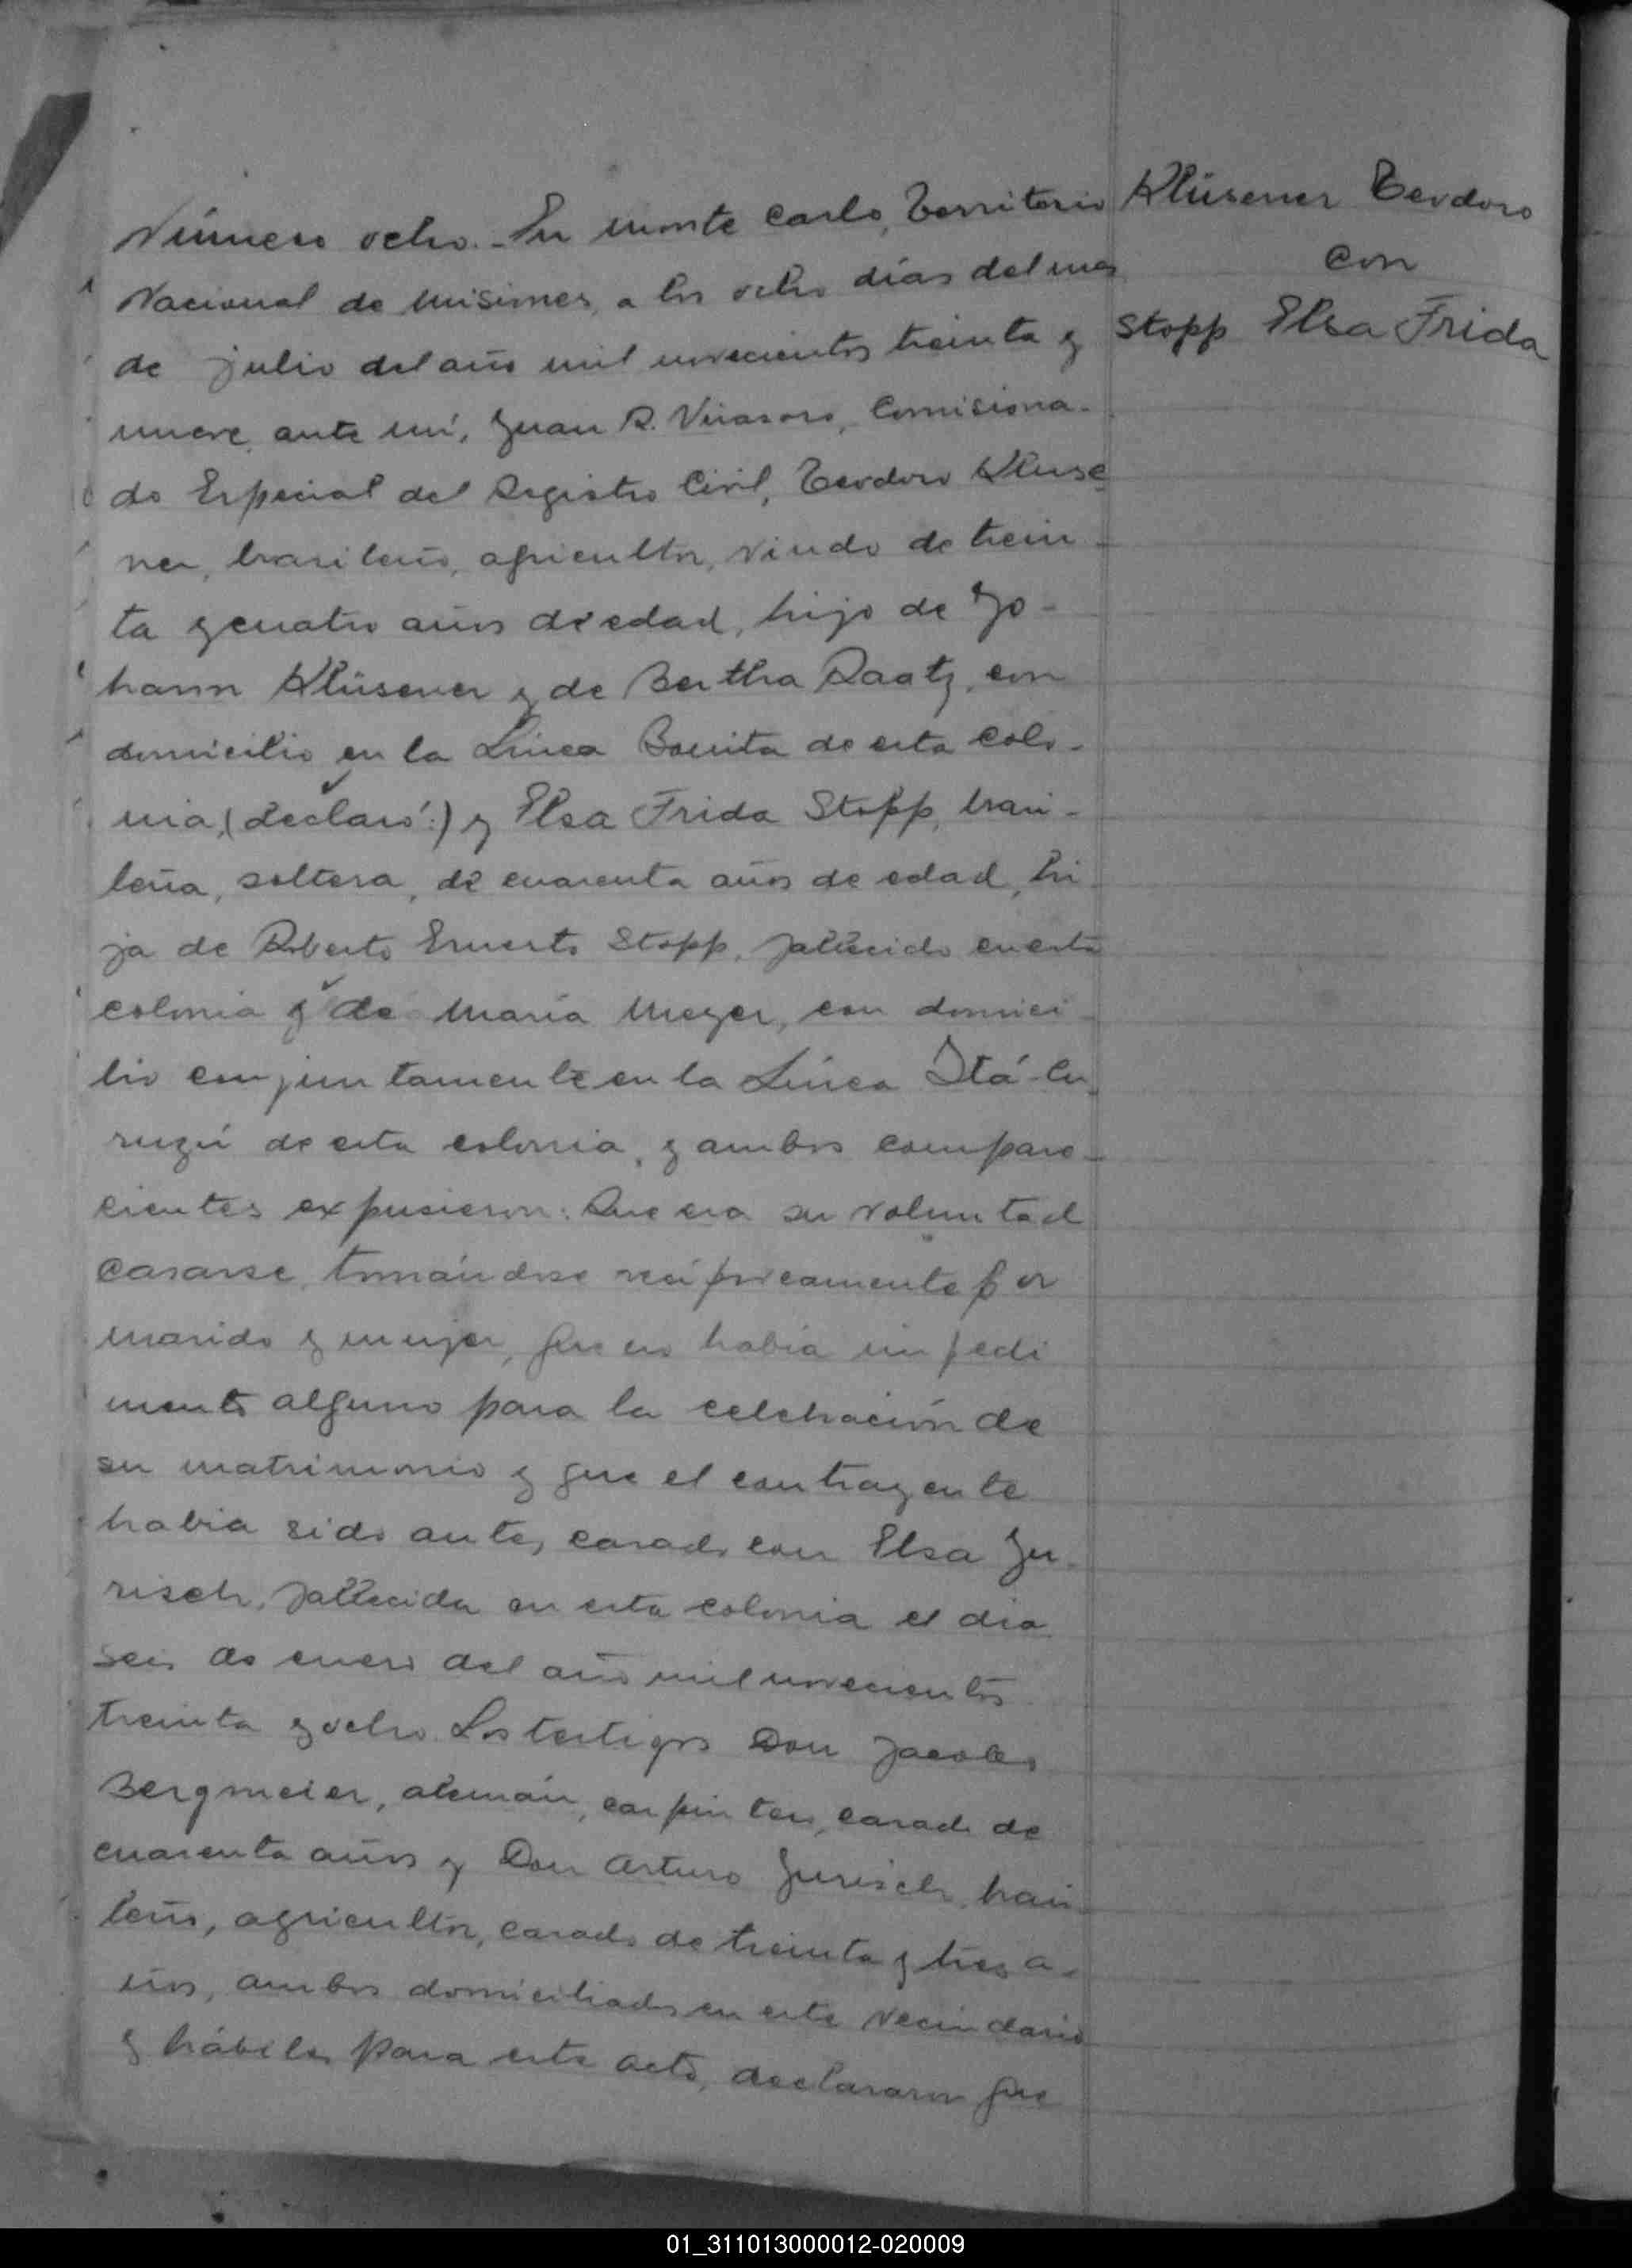 Número ocho.- En monte carlo, Territorio
Nacional de misiones, a los ocho días del mes
de julio del año mil novecientos treinta y
nueve, ante mí, Juan R. Virasoro, Comisiona-
do Especial del Registro Civil, Teodoro Kluse
ner, brasileño, agricultor, viudo de trein-
ta y cuatro años de edad, hijo de Jo-
hann Klüsener y de Bertha Raatz, con
domicilio en la Línea Bonita de esta colo-
nia, (declaró:) y Elsa Frida Stopp, brasi-
leña, soltera, de cuarenta años de edad, hi
ja de Roberto Ernesto Stopp, fallecido en esta
colonia y de María Meyer, con domici-
lio conjuntamente en la Línea Itá-Cu
ruzú de esta colonia, y ambos compare-
cientes expusieron: Que era su voluntad
casarse, tomándose recíprocamente por
marido y mujer, que no había impedi
mento alguno para la celebración de
su matrimonio y que el contrayente
había sido antes casado con Elsa Ju-
risch, fallecida en esta colonia el día
seis de enero del año mil novecientos
treinta y ocho. Los testigos Don Jacobo
Bergmeier, alemán, carpintero, casado de
cuarenta años y Don Arturo Jurisch, brasi
leño, agricultor, casado de treinta y tres a-
ños, ambos domiciliados en este vecindario
y hábiles para este acto, declararon que
Klüsener Teodoro
con
Stopp Elsa Frida
01_311013000012-020009